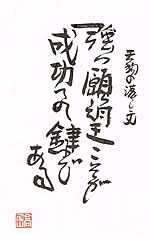 天動の落し文
強い願望こそが
成功への鍵で
ある